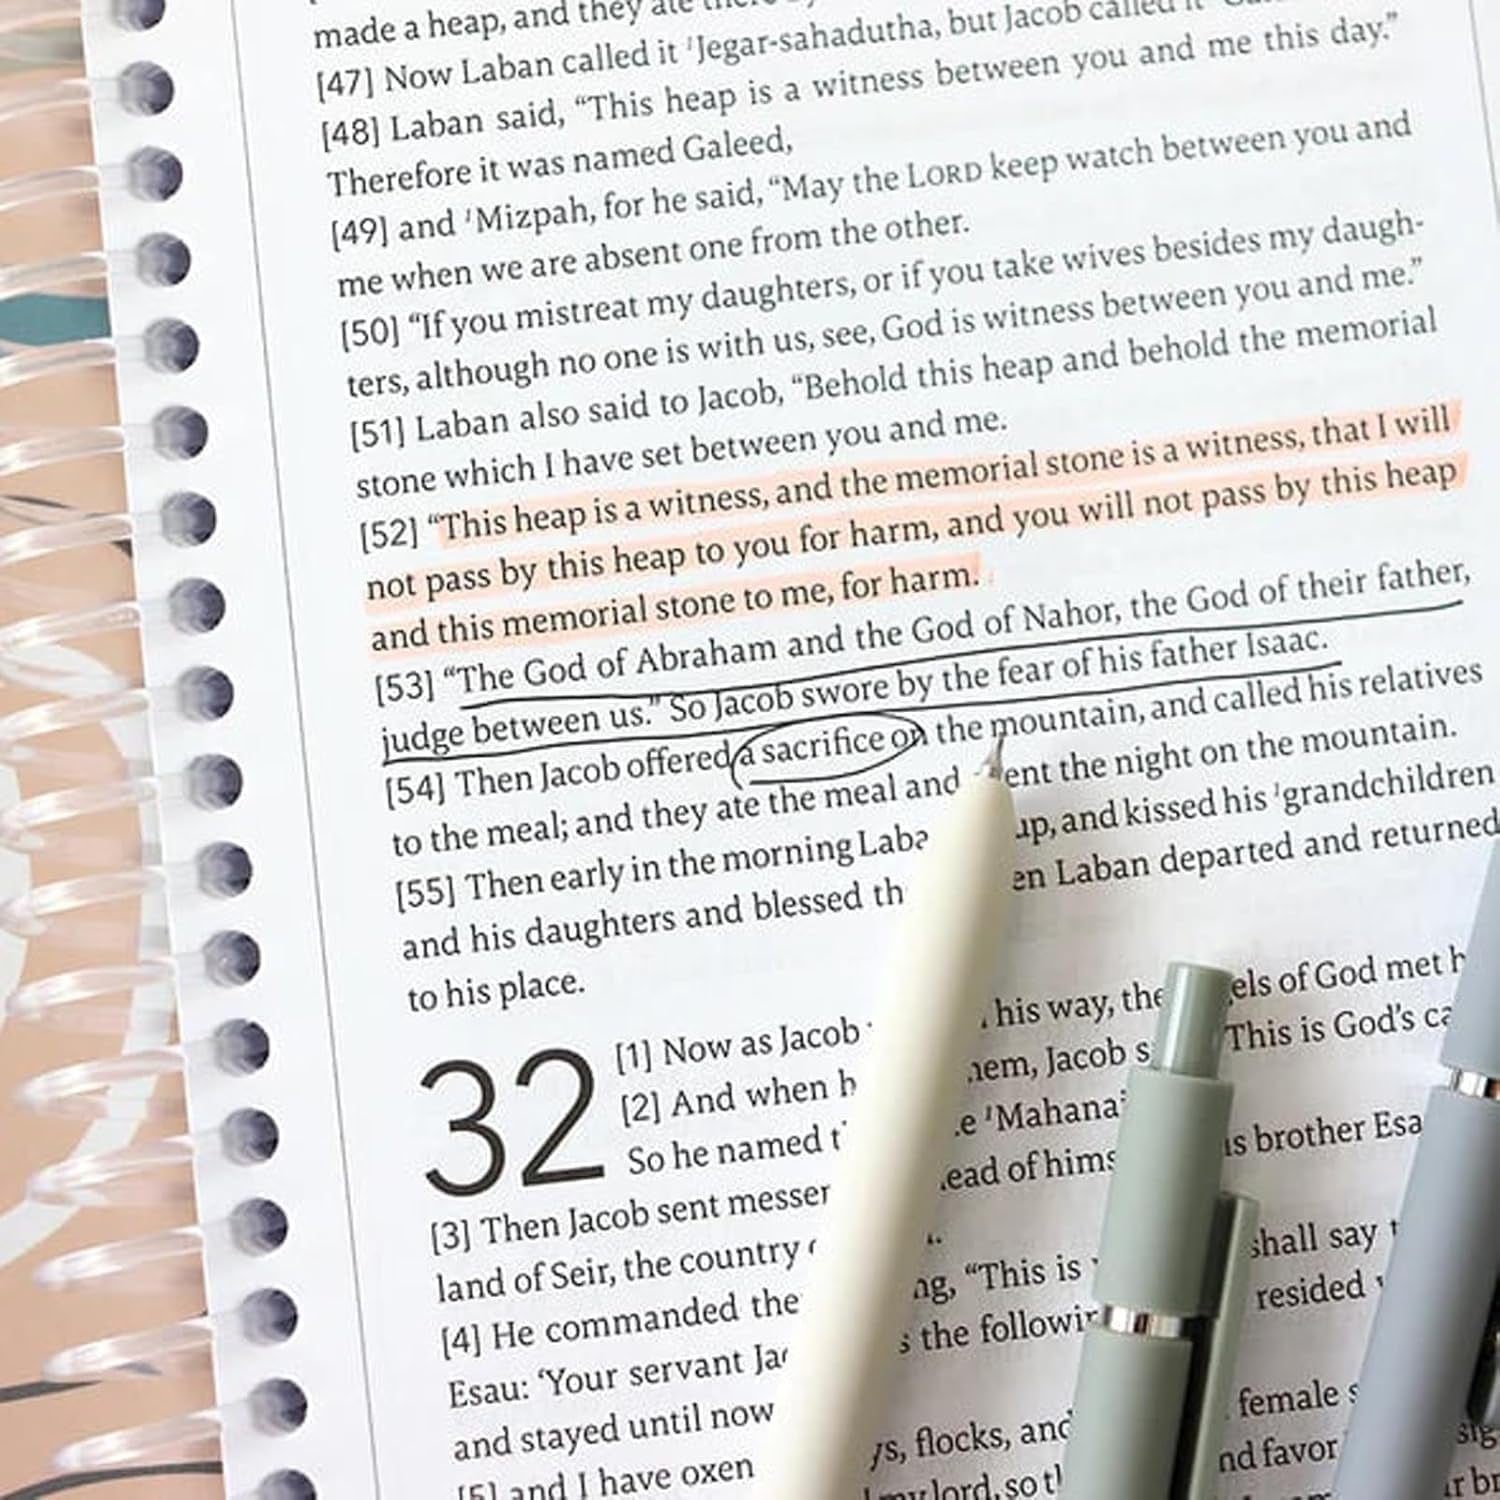 made a heap, and they ate
[47] Now Laban called it ¹Jegar-sahadutha, but Jacob called it
[48] Laban said, “This heap is a witness between you and me this day.”
Therefore it was named Galeed,
[49] and ¹Mizpah, for he said, “May the LORD keep watch between you and
me when we are absent one from the other.
[50] “If you mistreat my daughters, or if you take wives besides my daugh-
ters, although no one is with us, see, God is witness between you and me.”
[51] Laban also said to Jacob, “Behold this heap and behold the memorial
stone which I have set between you and me.
[52] “This heap is a witness, and the memorial stone is a witness, that I will
not pass by this heap to you for harm, and you will not pass by this heap
and this memorial stone to me, for harm.
[53] “The God of Abraham and the God of Nahor, the God of their father,
judge between us.” So Jacob swore by the fear of his father Isaac.
[54] Then Jacob offered a sacrifice on the mountain, and called his relatives
to the meal; and they ate the meal and ent the night on the mountain.
[55] Then early in the morning Laba up, and kissed his ¹grandchildren
and his daughters and blessed th en Laban departed and returned
to his place.
32
[1] Now as Jacob his way, the els of God met h
[2] And when h hem, Jacob s This is God’s ca
So he named t e ¹Mahana
[3] Then Jacob sent messen ead of hims is brother Esa
land of Seir, the country
[4] He commanded the ng, “This is shall say t
Esau: ‘Your servant Jac s the followin resided
and stayed until now
[5] and I have oxen ys, flocks, and female s
my lord, so th nd favor sig
r br